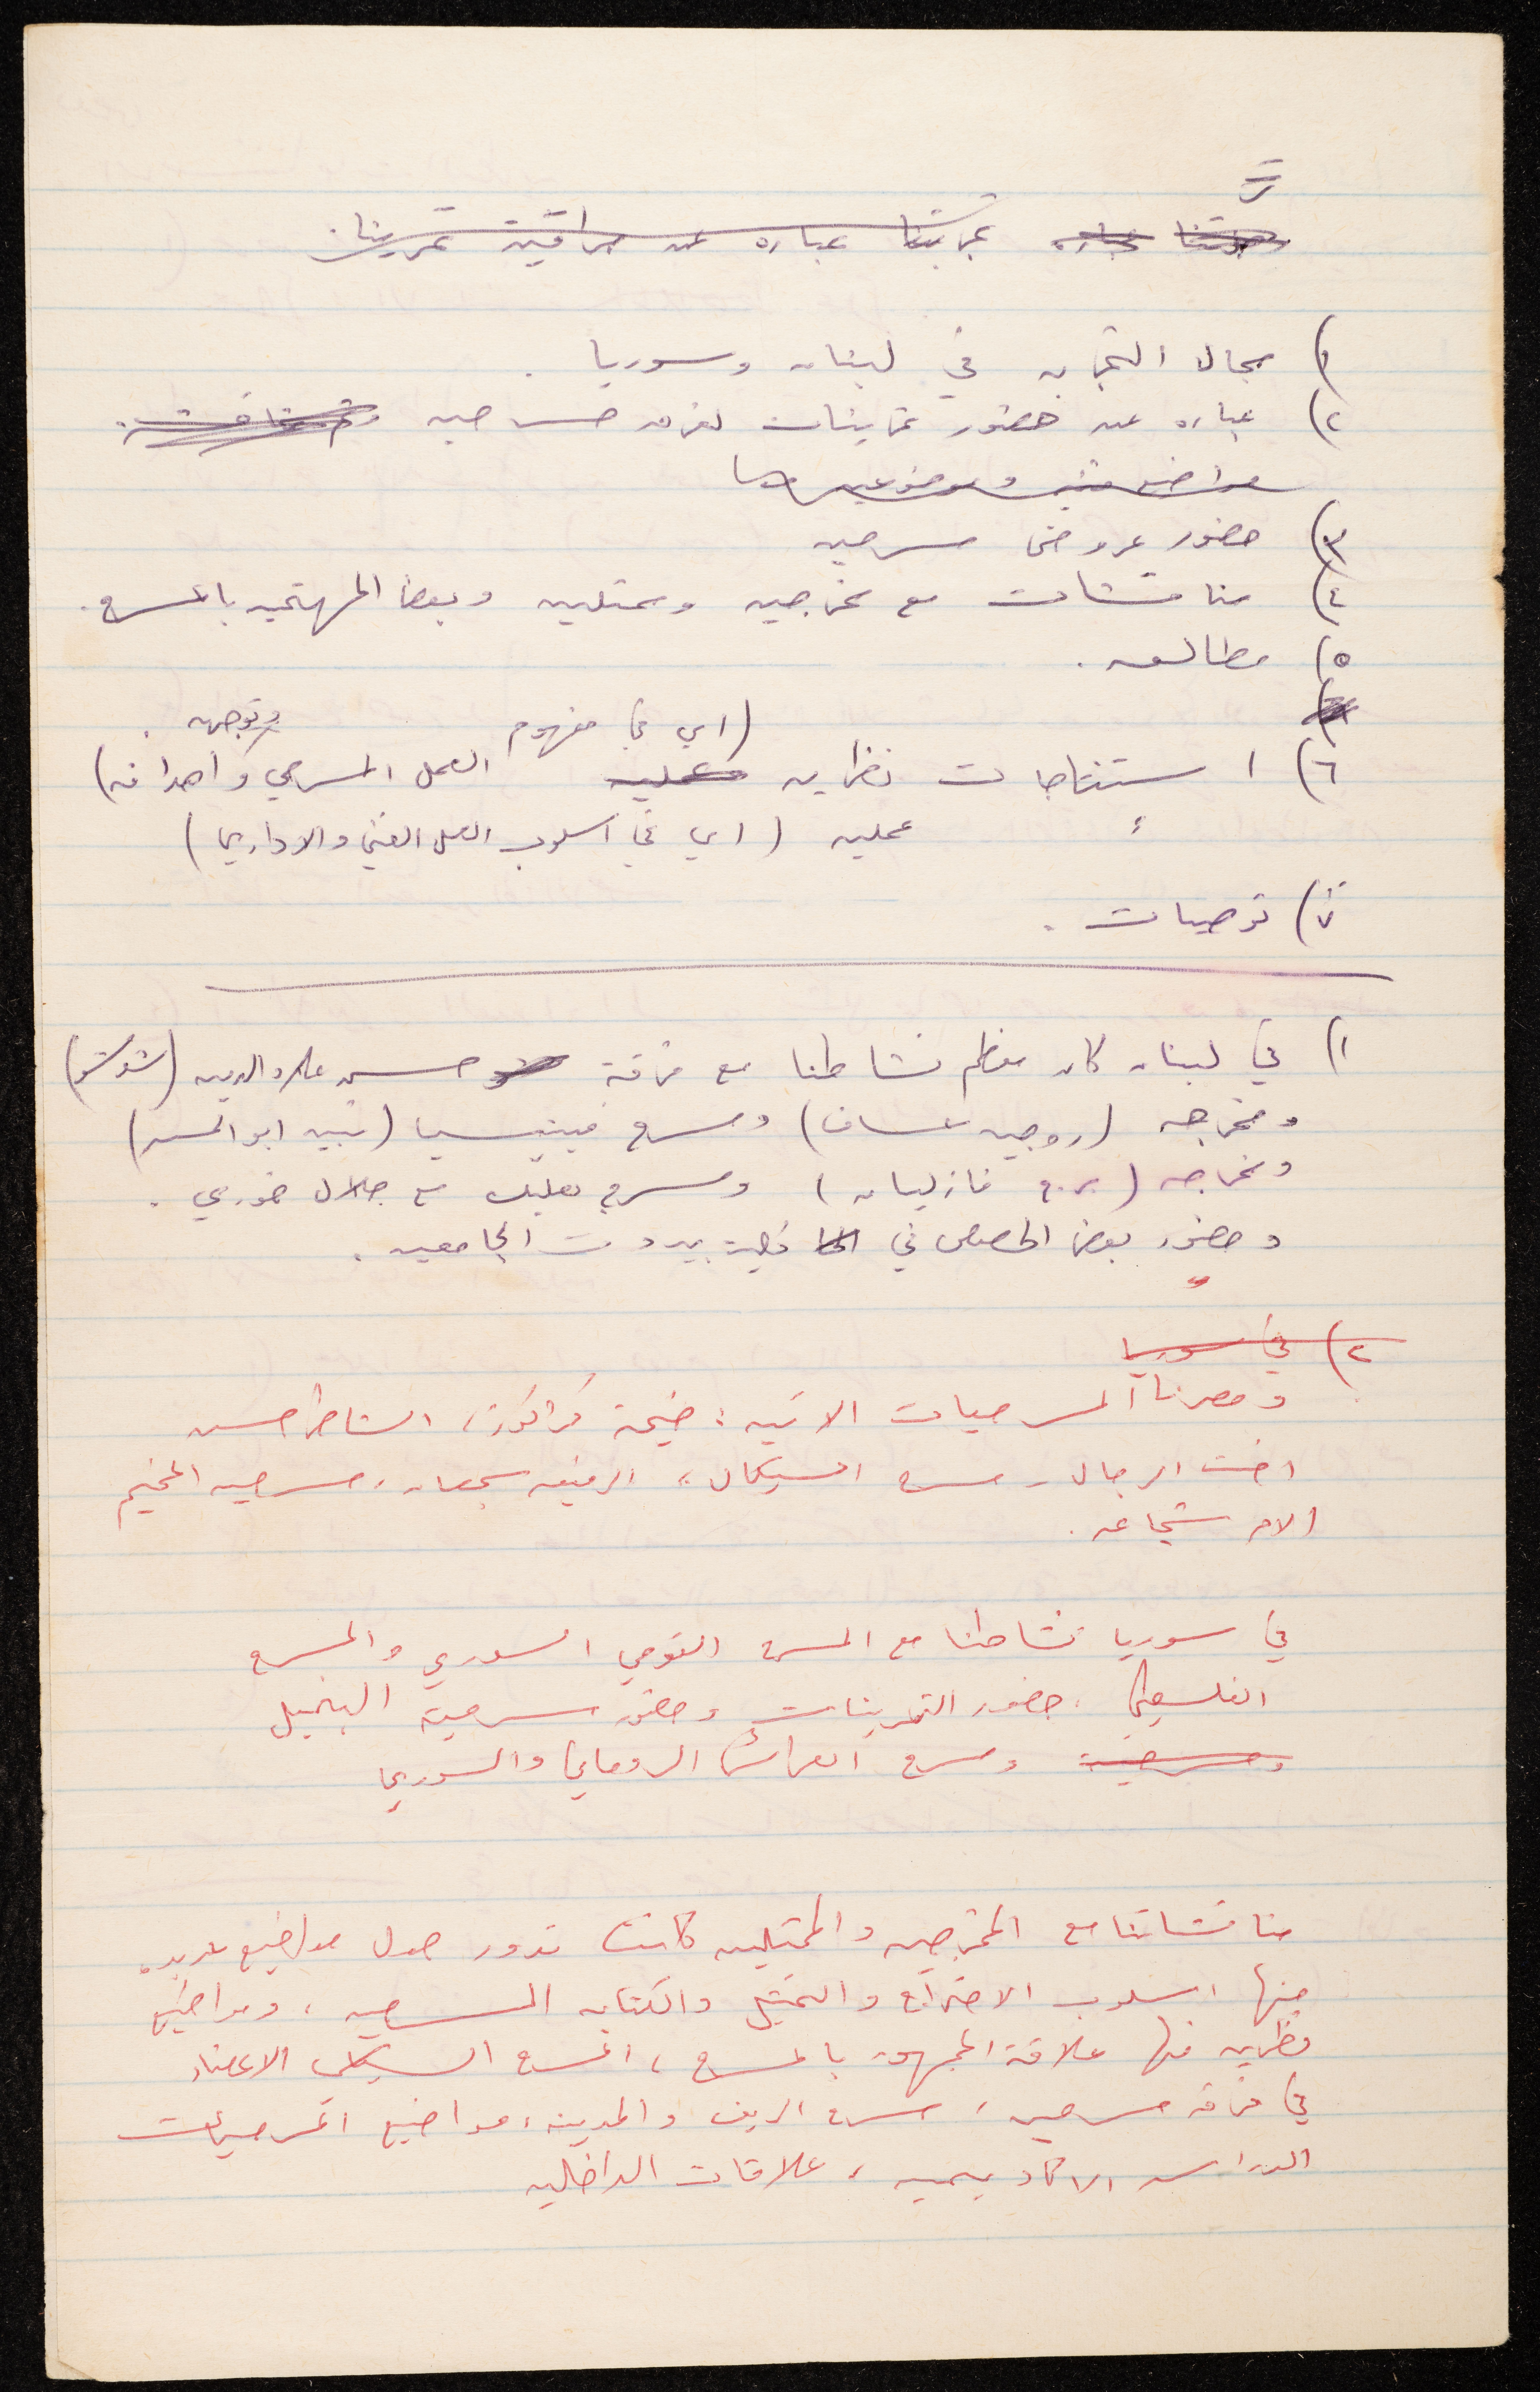 تجربتنا عباره عن مراقبة تمرينات
١) مجال التجربه في لبنان وسوريا .
٢) عباره عن حضور تمرينات لفرق مسرحيه
٣) حضور عروض مسرحيه
٤) مناقشات مع مخرجين وممثلين وبعض المهتمين بالمسرح .
٥) مطالعه .
٦) استنتاجات نظريه (اي في مفهوم العمل المسرحي وتوجهه واهدافه)
عمليه (اي في اسلوب العمل الفني والاداري)
٧) توصيات .
١) في لبنان كان معظم نشاطنا مع فرقة حسن علاء الدين (شوشو)
ومخرجه (روجيه عساف) ومسرح فينيسيا (نبيه ابو الحسن)
ومخرجه (برج فازليان) ومسرح بعلبك مع جلال خوري .
وحضور بعض الحصص في كلية بيروت الجامعيه .
٢) في سوريا
وحضرنا المسرحيات الاتيه : ضيعة كراكوز، الشاطر حسن
اخت الرجال، مسرح السيكال، الرفيق سجعان، مسرحيه المخيم
الام شجاعه .
في سوريا نشاطنا مع المسرح القومي السوري والمسرح
الفلسطيني، حضور التمرينات وحضور مسرحية البخيل
ومسرحية ومسرح العرائس الروماني والسوري
مناقشاتنا مع المخرجين والممثلين كانت تدور حول مواضيع عديده
منها اسلوب الاخراج والتمثيل والكتابه المسرحيه، ومواضيع
نظريه منها علاقة الجمهور بالمسرح، المسرح السياسي الاعضاء
في فرقه مسرحيه، مسرح الريف والمدينه، مواضيع المسرحيات
الدراسه الاكاديميه، علاقات الداخليه